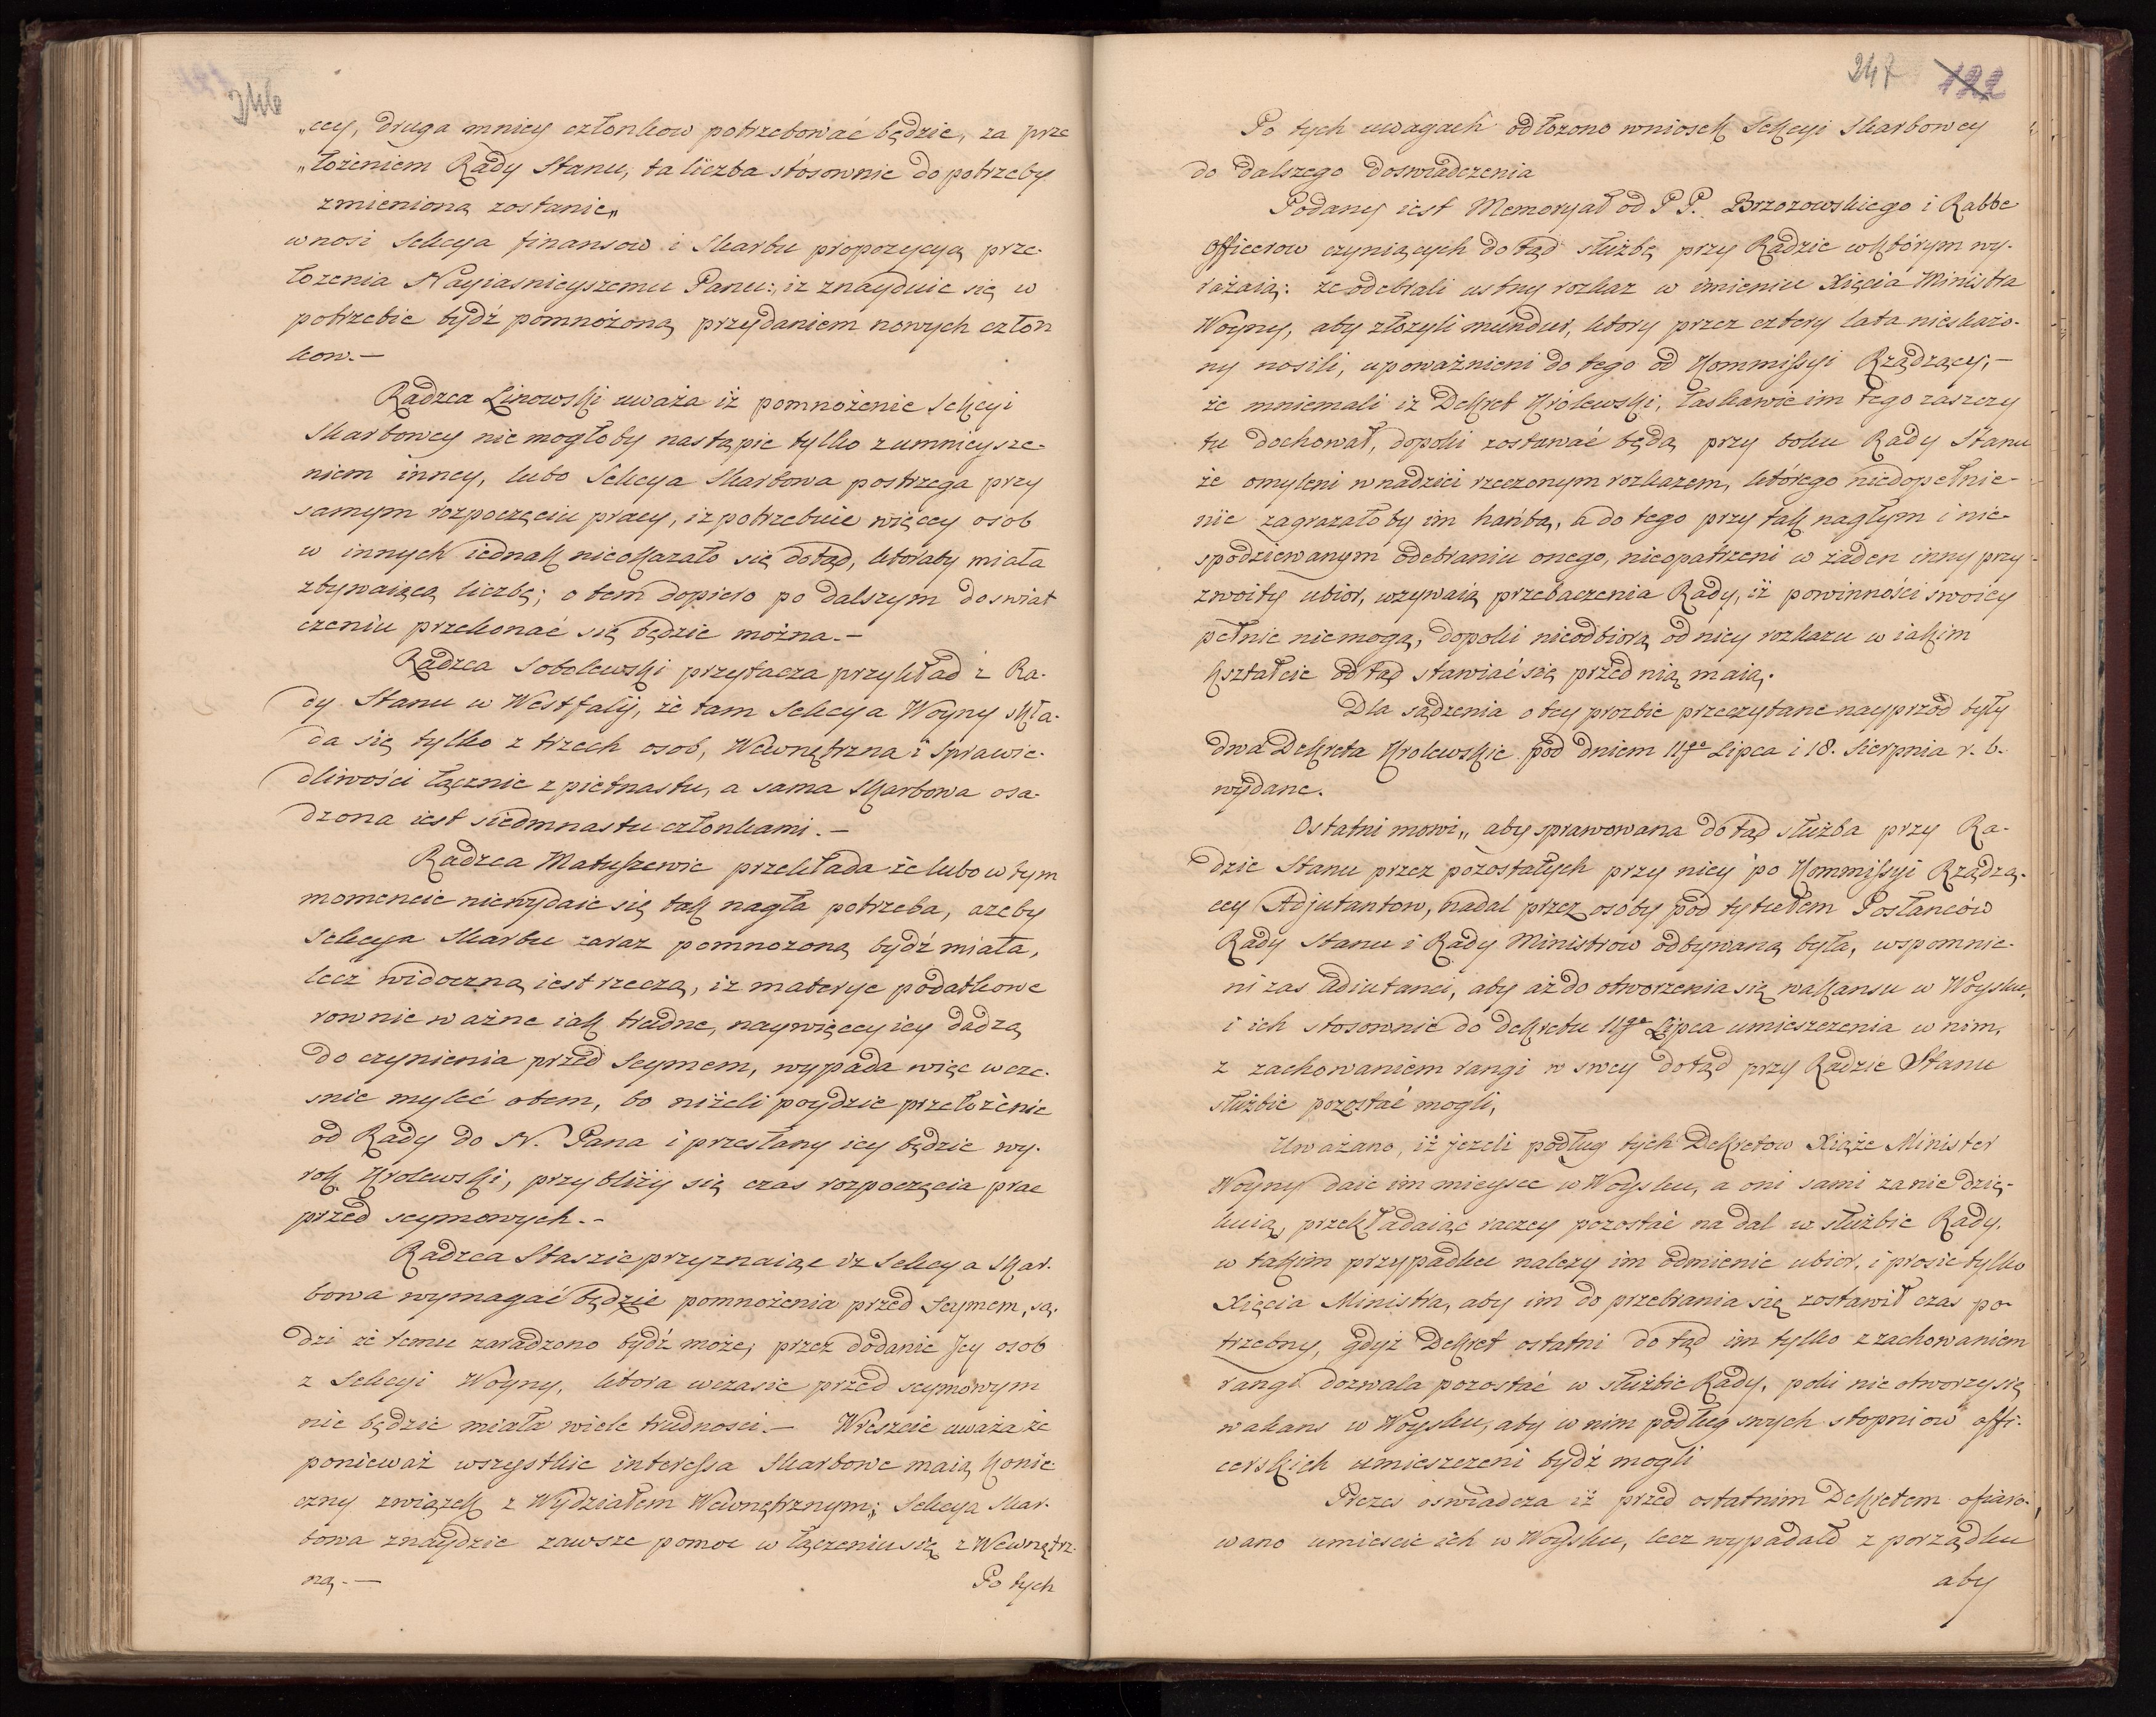 246
„cey, druga mniey członkow potrzebować będzie, za prze
„łożeniem Rady Stanu, ta liczba stósownie do potrzeby
zmienioną zostanie„
wnosi Sekcya finansow i Skarbu propozycyą prze-
łozenia Nayiasnieyszemu Panu: iz znayduie się w
potrzebie bydź pomnożoną przydaniem nowych człon
kow.—
Radzca Linowski uważa iż pomnożenie Sekcyi
Skarbowey nie mogłoby nastąpic tylko z umnieysze-
niem inney, lubo Sekcya Skarbowa postrzega przy
samym rozpoczęciu pracy, iz potrzebuie więcey osob
w innych iednak nieokazało się dotąd, ktoraby miała
zbywaiącą liczbę; o tem dopiero po dalszym doswiat
czeniu przekonać się będzie można.—
Radzca Sobolewski przytacza przykład z Ra-
dy Stanu w Westfalij, że tam Sekcya Woyny skła-
da się tylko z trzech osob, Wewnętrzna i Sprawie-
dliwości łącznie z pietnastu, a sama Skarbowa osa-
dzona iest siedmnastu członkami.—
Radzca Matuszewic przekłada że lubo w tym
momencie niewydaie się tak nagła potrzeba, azeby
Sekcya Skarbu zaraz pomnozoną bydź miała,
lecz widoczną iest rzeczą, iz materye podatkowe
rownie ważne iak trudne, naywięcey iey dadzą
do czynienia przed Seymem, wypada więc wcze-
snie myleć otem, bo niżeli poydzie przełożenie
od Rady do N. Pana i przesłany iey będzie wy-
rok Krolewski, przybliży się czas rozpoczęcia prac
przed seymowych.—
Radzca Staszic przyznaiąc iz Sekcya Skar-
bowa wymagać będzie pomnożenia przed Seymem, są-
dzi że temu zaradzono bydź może, przez dodanie Jey osob
z Sekcyi Woyny, ktora wczasie przed seymowym
nie będzie miała wiele trudnosci.— Wreszcie uważa że
ponieważ wszystkie interessa Skarbowe maią konie-
czny związek z Wydziałem Wewnętrznym; Sekcya Skar-
bowa znaydzie zawsze pomoc w łączeniu się z Wewnętrz-
ną.—
Po tych
247 122
Po tych uwagach odłozono wniosek Sekcyi Skarbowey
do dalszego doswiadczenia
Podany iest Memoryał od P P. Brzozowskiego i Rabbe
Officerow czyniących dotąd służbę przy Radzie wktórym wy-
rażaią: że odebrali ustny rozkaz w imieniu Xięcia Ministra
Woyny, aby złozyli mundur, ktory przez cztery lata nieskażo-
ny nosili, upoważnieni do tego od Kommissyi Rządzący;—
że mniemali iz Dekret Królewski, łaskawie im tego zaszczy
tu dochował, dopoki zostawać będą przy boku Rady Stanu
że omyleni w nadziei rzeczonym rozkazem, którego niedopełnie-
nie zagrazałoby im hańbą, a do tego przy tak nagłym i nie-
spodziewanym odebraniu onego, nieopatrzeni w żaden inny przy-
zwoity ubior, wzywaią przebaczenia Rady, iż powinności swoiey
pełnic niemogą, dopoki nieodbiorą od niey rozkazu w iakim
kształcie odtąd stawiać się przed nią maią.
Dla sądzenia o tey prozbie przeczytane nayprzod były
dwa Dekreta Krolewskie pod dniem 11go Lipca i 18. Sierpnia r. b.
wydane.
Ostatni mowi„ aby sprawowana dotąd służba przy Ra-
dzie Stanu przez pozostałych przy niey po Kommissyi Rządzą-
cey Adjutantow, nadal przez osoby pod tytułem Posłanców
Rady Stanu i Rady Ministrow odbywaną była, wspomnie-
ni zas Adiutanci, aby aż do otworzenia się wakansu w Woysku,
i ich stosownie do dekretu 11go Lipca umieszczenia w nim,
z zachowaniem rangi w swey dotąd przy Radzie Stanu
służbie pozostać mogli,
Uważano, iż jezeli podług tych Dekretow Xiąże Minister
Woyny daie im mieysce w Woysku, a oni sami zanie dzię-
kuią, przekładaiąc raczey pozostać na dal w służbie Rady,
w takim przypadku nalezy im odmienic ubior, i prosic tylko
Xięcia Ministra, aby im do przebrania się zostawił czas po-
trzebny, gdyż Dekret ostatni dotąd im tylko z zachowaniem
rangi dozwala pozostać w służbie Rady, poki nie otworzy się
wakans w Woysku, aby w nim podług swych stopniow offi-
cerskich umieszczeni bydź mogli
Prezes oswiadcza iż przed ostatnim Dekretem ofiaro-
wano umiescic ich w Woysku, lecz wypadało z porządku
aby